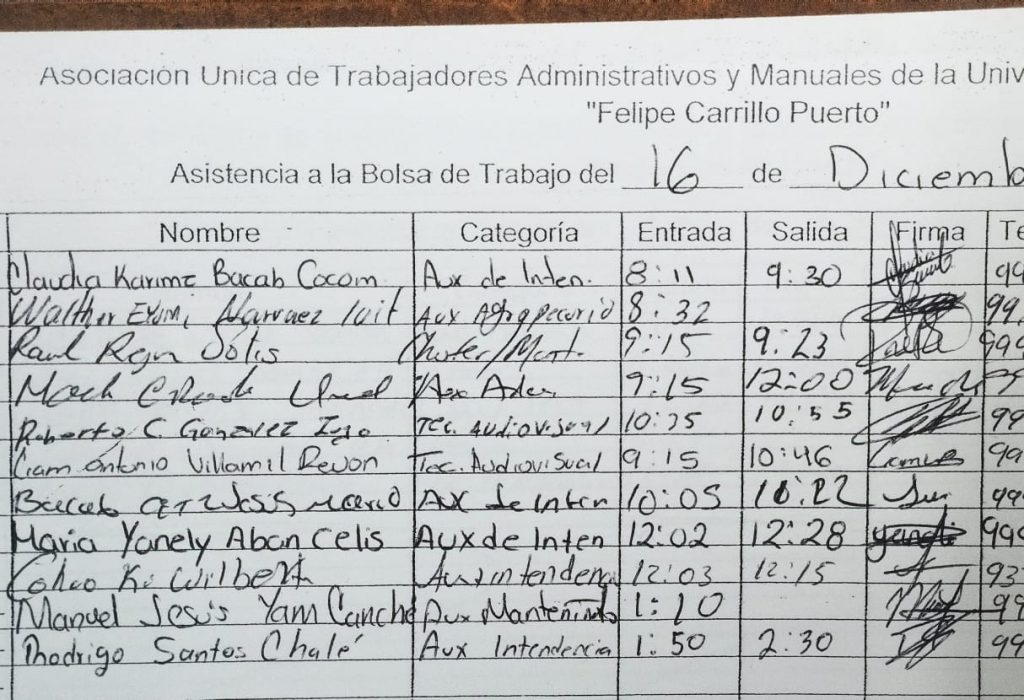 Asociación Unica de Trabajadores Administrativos y Manuales de la Univ
"Felipe Carrillo Puerto"
Asistencia a la Bolsa de Trabajo del 16 de Diciemb
Nombre Categoría Entrada Salida Firma Te
Claudia Karime Bacab Cocom Aux de Inten. 8:11 9:30 99
Walther Narvaez Aux Agropecurio 8:32 99
Raul Rejn Sólis Chofer/Mant. 9:15 9:23 999
Aux 9:15 12:00
Roberto C. González Tec. Audiovisual 10:35 10:55 99
Antonio Villamil Tec. Audiovisual 9:15 10:46 99
Bacab Jesús Aux de Inten 10:05 10:22 99
Maria Yanely Aban Celis Aux de Inten 12:02 12:28 999
Wilbert Aux intendenc 12:03 12:15 93
Manuel Jesús Yam Canché Aux 1:10 99
Rhodrigo Santos Chalé Aux Intendencia 1:50 2:30 99